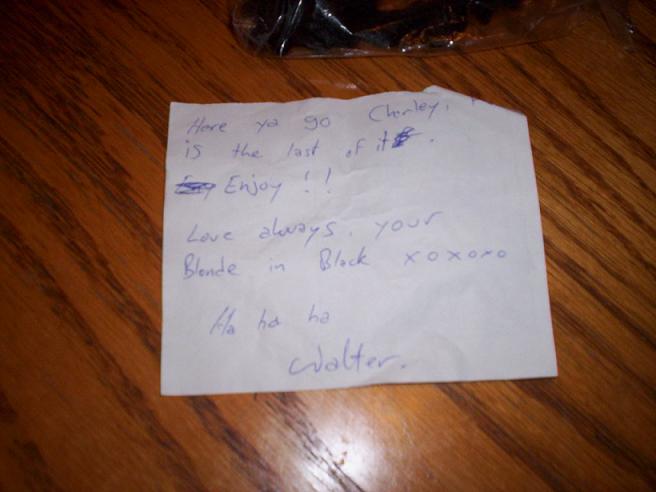 Here ya go Charley,
is the last of it.
Enjoy !!
Love always, your
Blonde in Black xoxoxo
Ha ha ha
Walter.